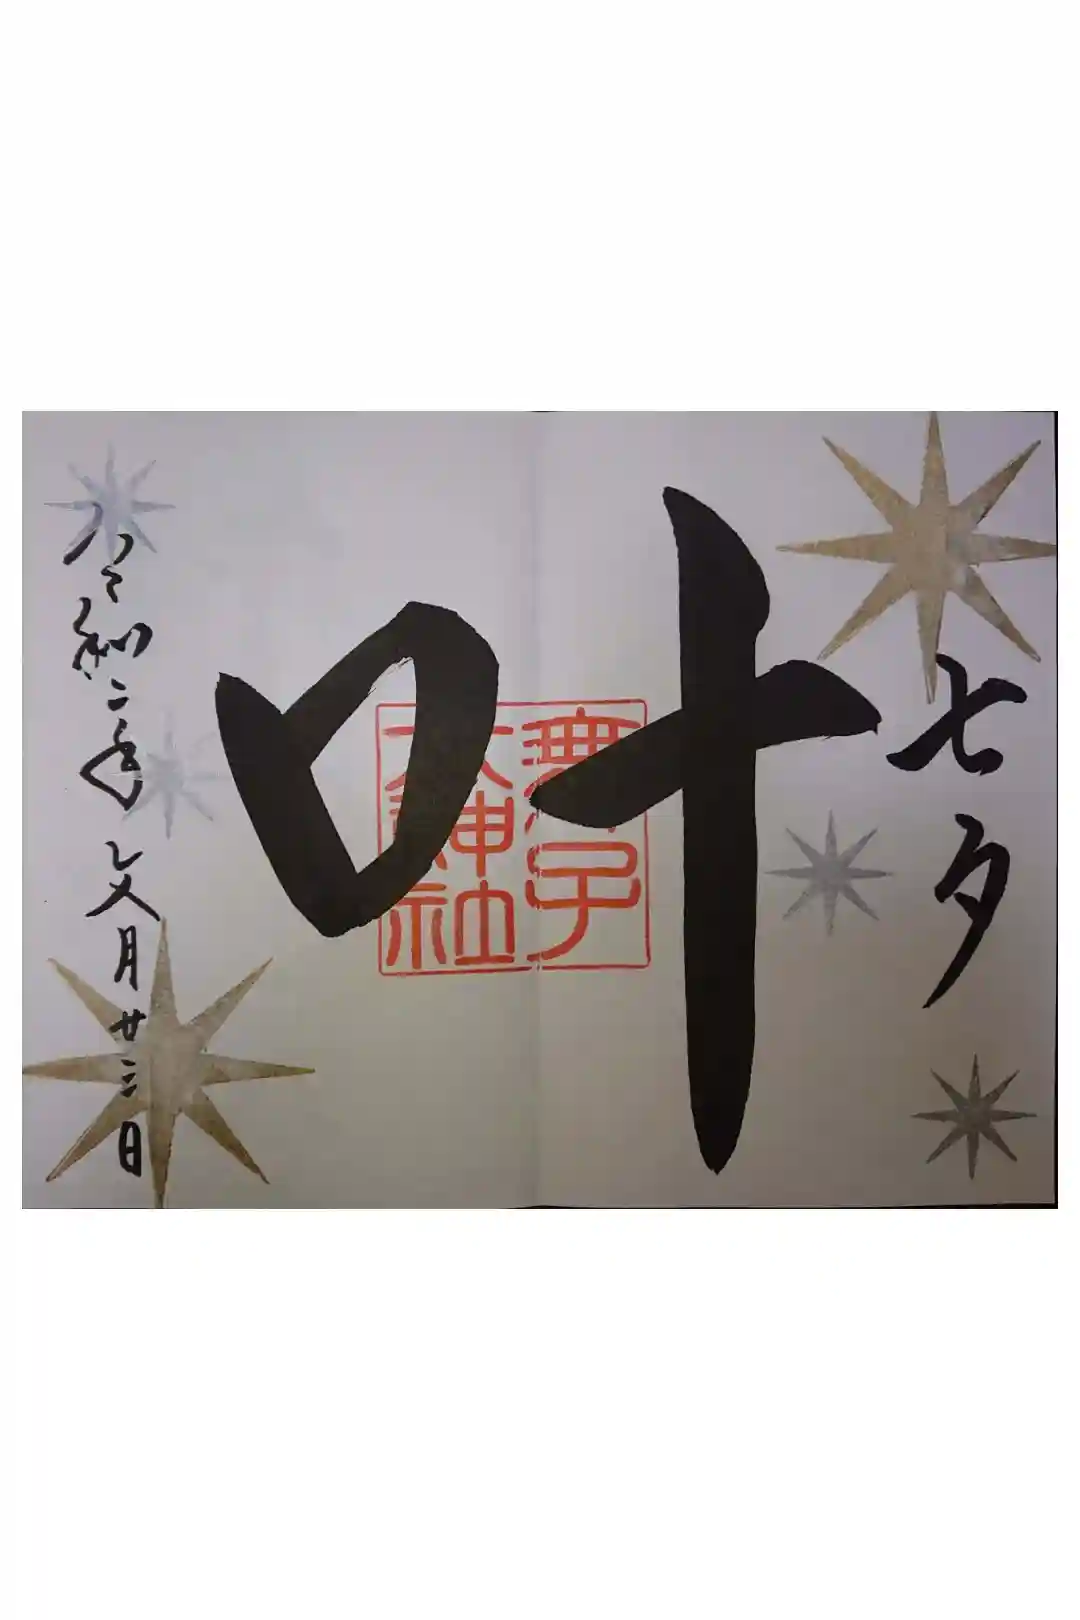 七夕
叶
大神社
令和二年文月廿三日